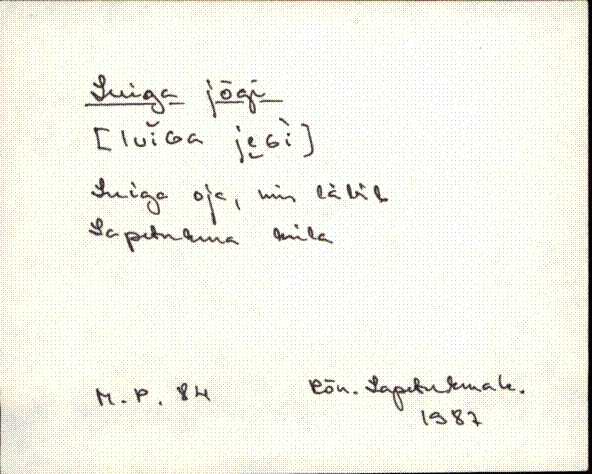 Luiga jõgi
[luĭGa je̮Gì]
Luiga oja, mis läbib
Sapetukma küla
M. P. 84
Rõu. Sapetukmak.
1987